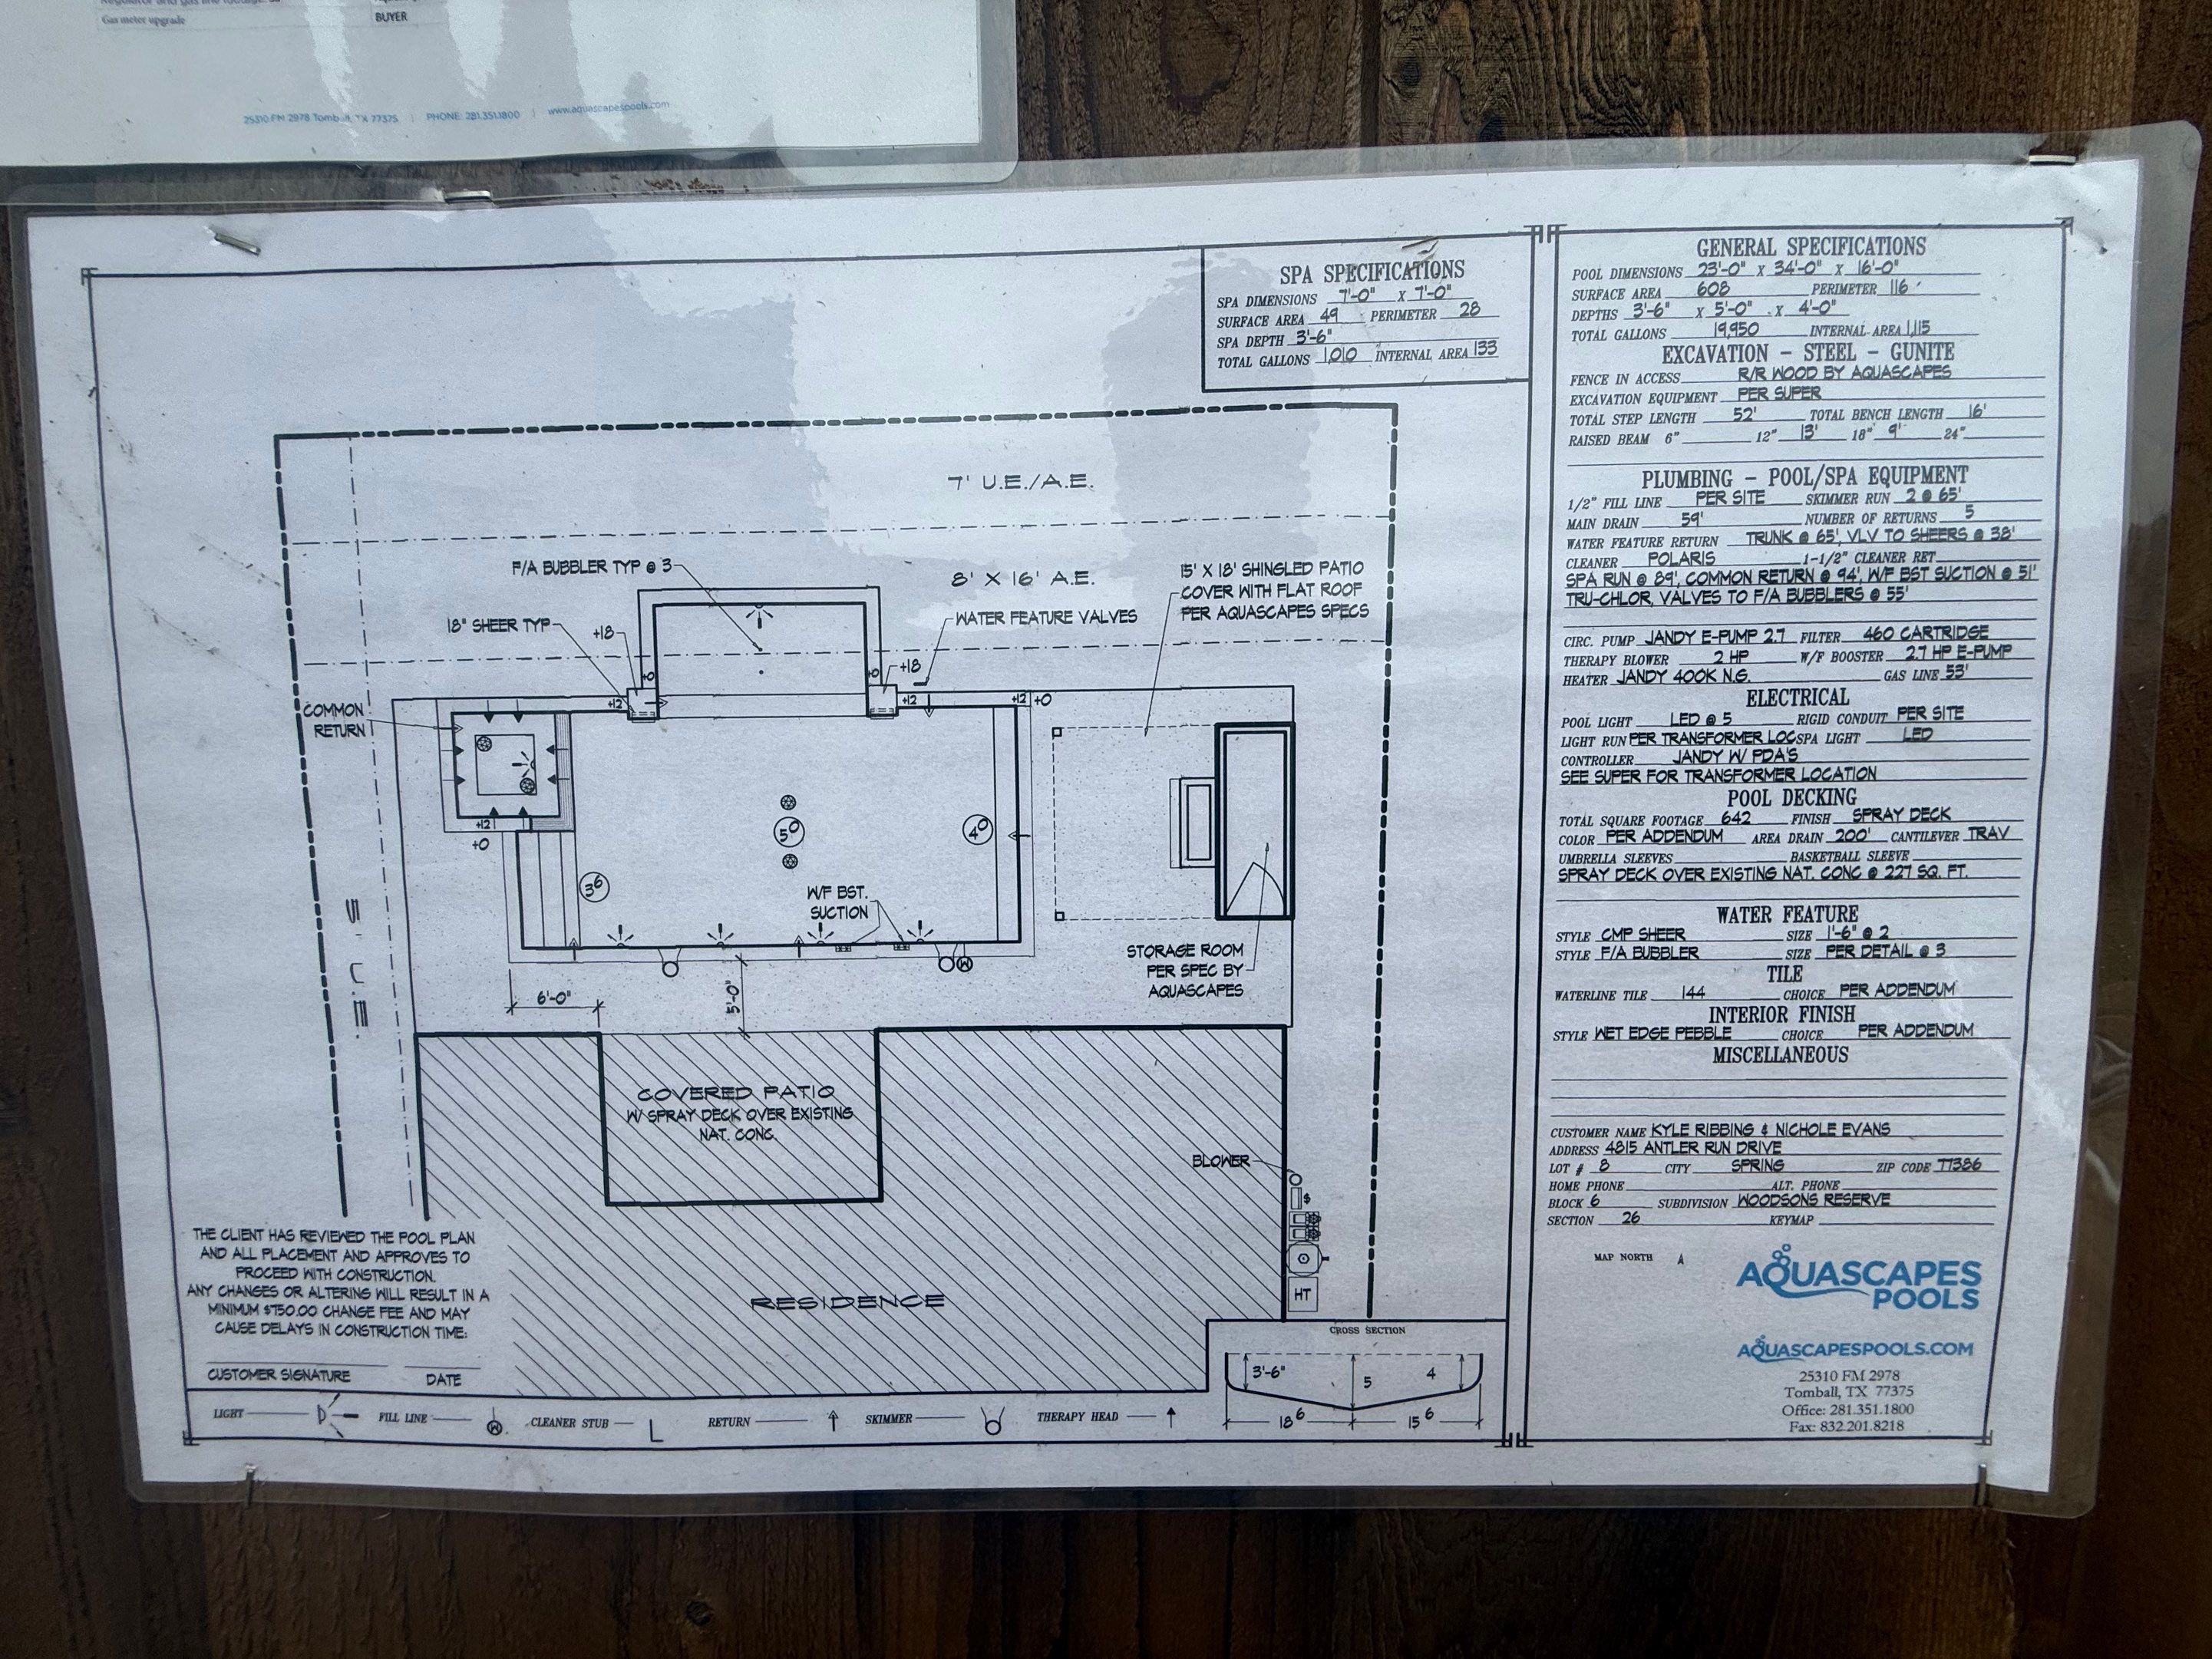 Gas meter upgrade BUYER
25310 FM 2978 Tomball, TX 77375 | PHONE: 281.351.1800 | www.aquascapespools.com
SPA SPECIFICATIONS
SPA DIMENSIONS 7'-0" X 7'-0"
SURFACE AREA 49 PERIMETER 28
SPA DEPTH 3'-6"
TOTAL GALLONS 1,010 INTERNAL AREA 133
7' U.E./A.E.
8' X 16' A.E.
F/A BUBBLER TYP @ 3
18" SHEER TYP
+18
WATER FEATURE VALVES
+18
15' X 18' SHINGLED PATIO
COVER WITH FLAT ROOF
PER AQUASCAPES SPECS
+0
+0
+12
+12
+12
+0
COMMON
RETURN
+12
+0
5⁰
4⁰
3⁶
W/F BST.
SUCTION
STORAGE ROOM
PER SPEC BY
AQUASCAPES
5' U.E.
6'-0"
5'-0"
COVERED PATIO
W/ SPRAY DECK OVER EXISTING
NAT. CONC.
BLOWER
$
HT
RESIDENCE
THE CLIENT HAS REVIEWED THE POOL PLAN
AND ALL PLACEMENT AND APPROVES TO
PROCEED WITH CONSTRUCTION.
ANY CHANGES OR ALTERING WILL RESULT IN A
MINIMUM $750.00 CHANGE FEE AND MAY
CAUSE DELAYS IN CONSTRUCTION TIME:
CUSTOMER SIGNATURE DATE
CROSS SECTION
3'-6"
5
4
18⁶
15⁶
LIGHT FILL LINE W CLEANER STUB RETURN SKIMMER THERAPY HEAD
GENERAL SPECIFICATIONS
POOL DIMENSIONS 23'-0" X 34'-0" X 16'-0"
SURFACE AREA 608 PERIMETER 116'
DEPTHS 3'-6" X 5'-0" X 4'-0"
TOTAL GALLONS 19,950 INTERNAL AREA 1,115
EXCAVATION - STEEL - GUNITE
FENCE IN ACCESS R/R WOOD BY AQUASCAPES
EXCAVATION EQUIPMENT PER SUPER
TOTAL STEP LENGTH 52' TOTAL BENCH LENGTH 16'
RAISED BEAM 6" 12" 13' 18" 9' 24"
PLUMBING - POOL/SPA EQUIPMENT
1/2" FILL LINE PER SITE SKIMMER RUN 2 @ 65'
MAIN DRAIN 59' NUMBER OF RETURNS 5
WATER FEATURE RETURN TRUNK @ 65', VLV TO SHEERS @ 38'
CLEANER POLARIS 1-1/2" CLEANER RET.
SPA RUN @ 89', COMMON RETURN @ 94', W/F BST SUCTION @ 51'
TRU-CHLOR, VALVES TO F/A BUBBLERS @ 55'
CIRC. PUMP JANDY E-PUMP 2.7 FILTER 460 CARTRIDGE
THERAPY BLOWER 2 HP W/F BOOSTER 2.7 HP E-PUMP
HEATER JANDY 400K N.G. GAS LINE 53'
ELECTRICAL
POOL LIGHT LED @ 5 RIGID CONDUIT PER SITE
LIGHT RUN PER TRANSFORMER LOC SPA LIGHT LED
CONTROLLER JANDY W/ PDA'S
SEE SUPER FOR TRANSFORMER LOCATION
POOL DECKING
TOTAL SQUARE FOOTAGE 642 FINISH SPRAY DECK
COLOR PER ADDENDUM AREA DRAIN 200' CANTILEVER TRAV
UMBRELLA SLEEVES BASKETBALL SLEEVE
SPRAY DECK OVER EXISTING NAT. CONC @ 227 SQ. FT.
WATER FEATURE
STYLE CMP SHEER SIZE 1'-6" @ 2
STYLE F/A BUBBLER SIZE PER DETAIL @ 3
TILE
WATERLINE TILE 144 CHOICE PER ADDENDUM
INTERIOR FINISH
STYLE WET EDGE PEBBLE CHOICE PER ADDENDUM
MISCELLANEOUS
CUSTOMER NAME KYLE RIBBING & NICHOLE EVANS
ADDRESS 4815 ANTLER RUN DRIVE
LOT # 8 CITY SPRING ZIP CODE 77386
HOME PHONE ALT. PHONE
BLOCK 6 SUBDIVISION WOODSONS RESERVE
SECTION 26 KEYMAP
MAP NORTH
AQUASCAPES
POOLS
AQUASCAPESPOOLS.COM
25310 FM 2978
Tomball, TX 77375
Office: 281.351.1800
Fax: 832.201.8218